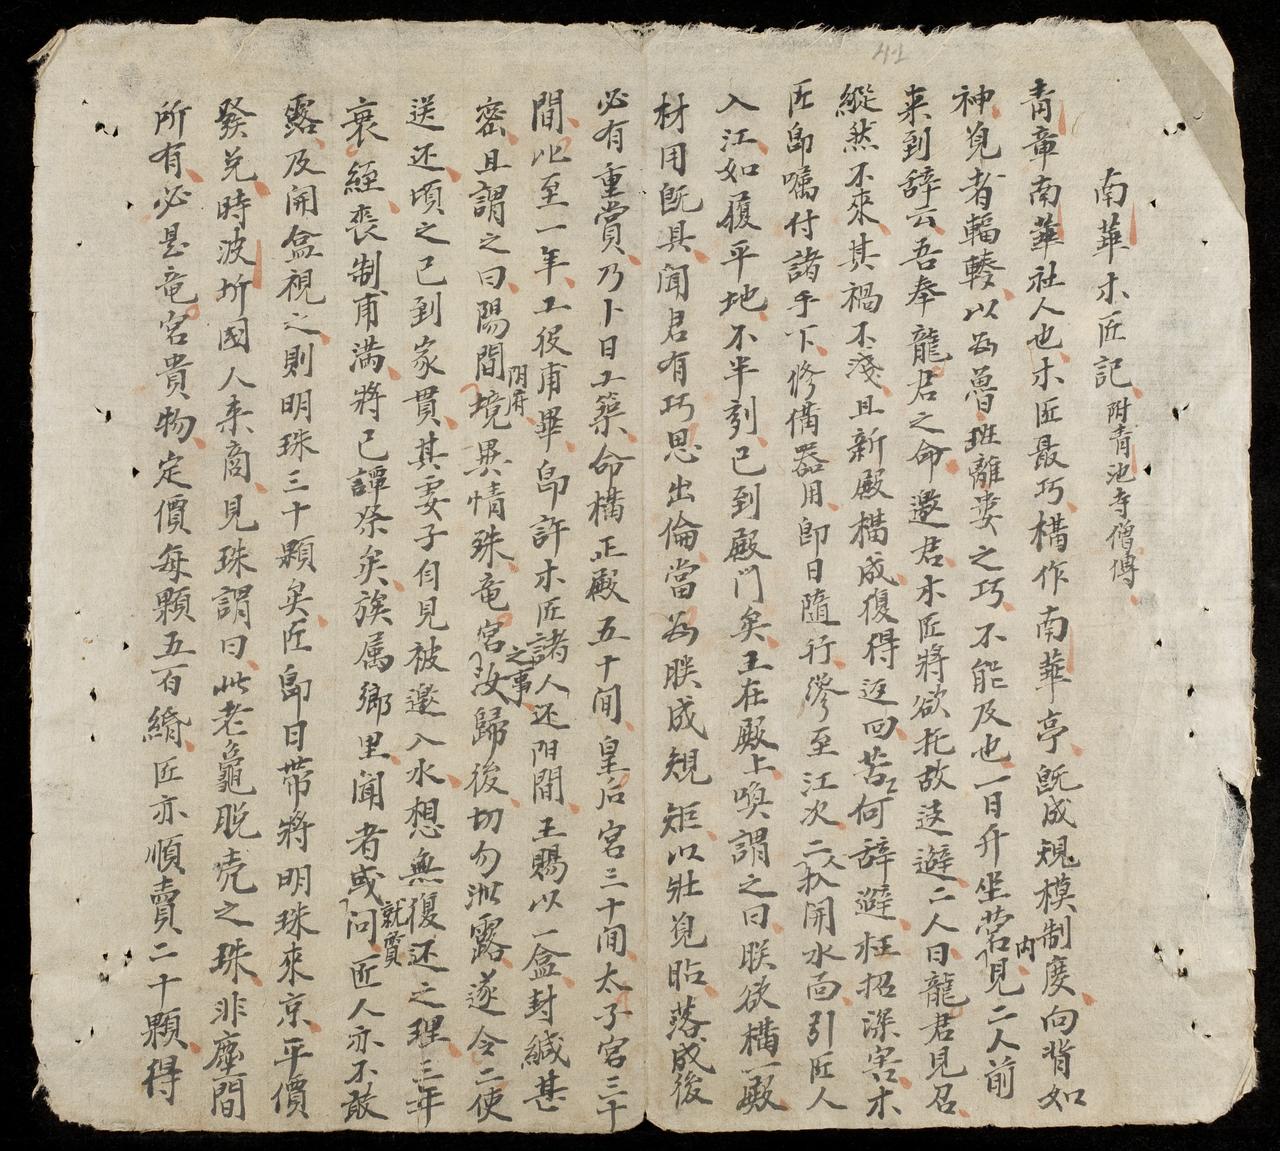 41
南華木匠記附青池寺僧傳
青章南華社人也木匠最巧構作南華亭既成規模制度向背如
神見者輻輳以为魯班離婁之巧不能及也一日升坐营内見二人前
来到辞云吾奉龍君之命邀君木匠將欲托故迯避二人曰龍君見召
縱然不來其禍不淺且新殿構成復得返回苦苦何辞避枉招深害木
匠即嘱付諸手下修備器用即日隨行纔至江次二人扒開水面引匠人
入江如履平地不半刻已到殿門矣王在殿上喚謂之曰朕欲構一殿
材用既具聞君有巧思出倫當为朕成規矩以壯覓瞻落成後
必有重賞乃卜日工築命構正殿五十间皇后宮三十间太子宮三十
間比至一年工役甫畢即許木匠諸人还阳間王賜以一盒封緘甚
密且謂之曰陽間阴府境異情殊竜宮之事汝歸後切勿泄露遂令二使
送还頃之已到家貫其妻子自見被邀入水想無復还之理三年
衰絰喪制甫满將已譚祭矣族属鄉里聞者或問就賀匠人亦不敢
露及開盒視之則明珠三十顆矣匠即日帶將明珠來京平價
發兑時波圻國人来商見珠謂曰此老龜脱壳之珠非塵間
所有必是竜宮貴物定價每顆五百緡匠亦順賣二十顆得